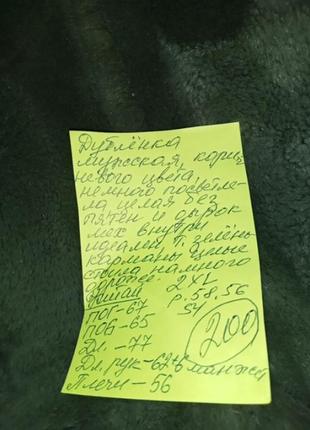 Дублёнка
мужская, корич
невого цвета,
немного посветле-
ла целая без
пятен и дырок
мех внутри
идеален т. зелёны
карманы целые
стоила намного
дороже. 2XL
р. 58, 56
54
ПОГ-67
ПОБ-65
200
Дл. -77
Дл. рук-62+ манжет
Плечи-56